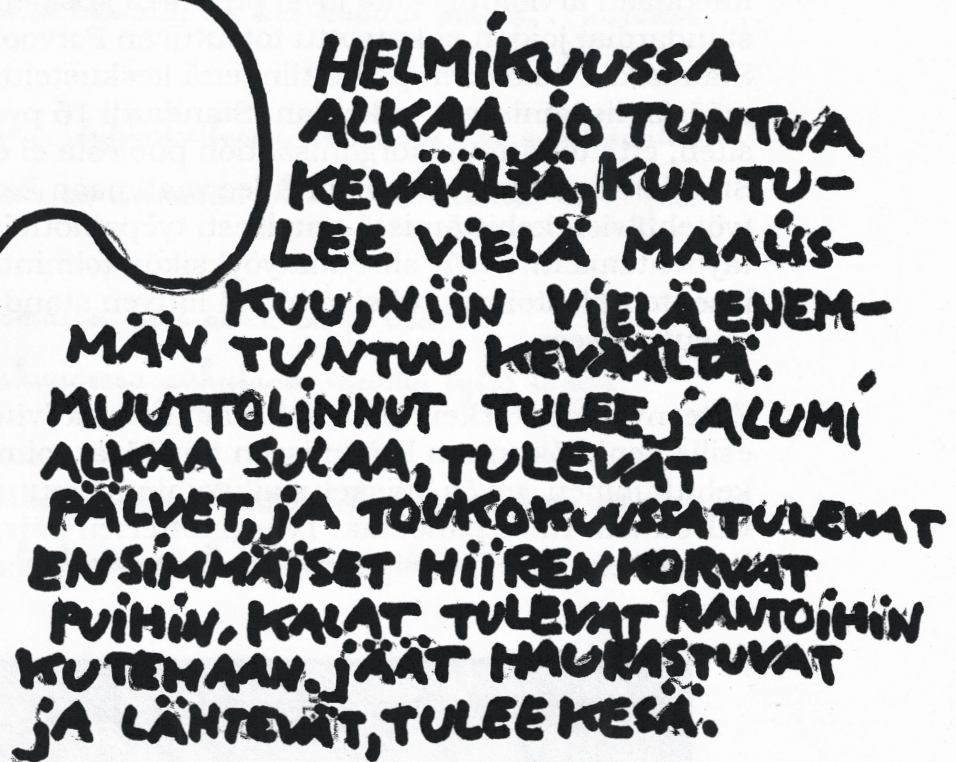 HELMIKUUSSA
ALKAA JO TUNTUA
KEVÄÄLTÄ, KUN TU-
LEE VIELÄ MAALIS-
KUU, NIIN VIELÄ ENEM-
MÄN TUNTUU KEVÄÄLTÄ.
MUUTTOLINNUT TULEE, JA LUMI
ALKAA SULAA, TULEVAT
PÄLVET, JA TOUKOKUUSSA TULEVAT
ENSIMMÄISET HIIRENKORVAT
PUIHIN. KALAT TULEVAT RANTOIHIN
KUTEMAAN. JÄÄT HAURASTUVAT
JA LÄHTEVÄT, TULEE KESÄ.